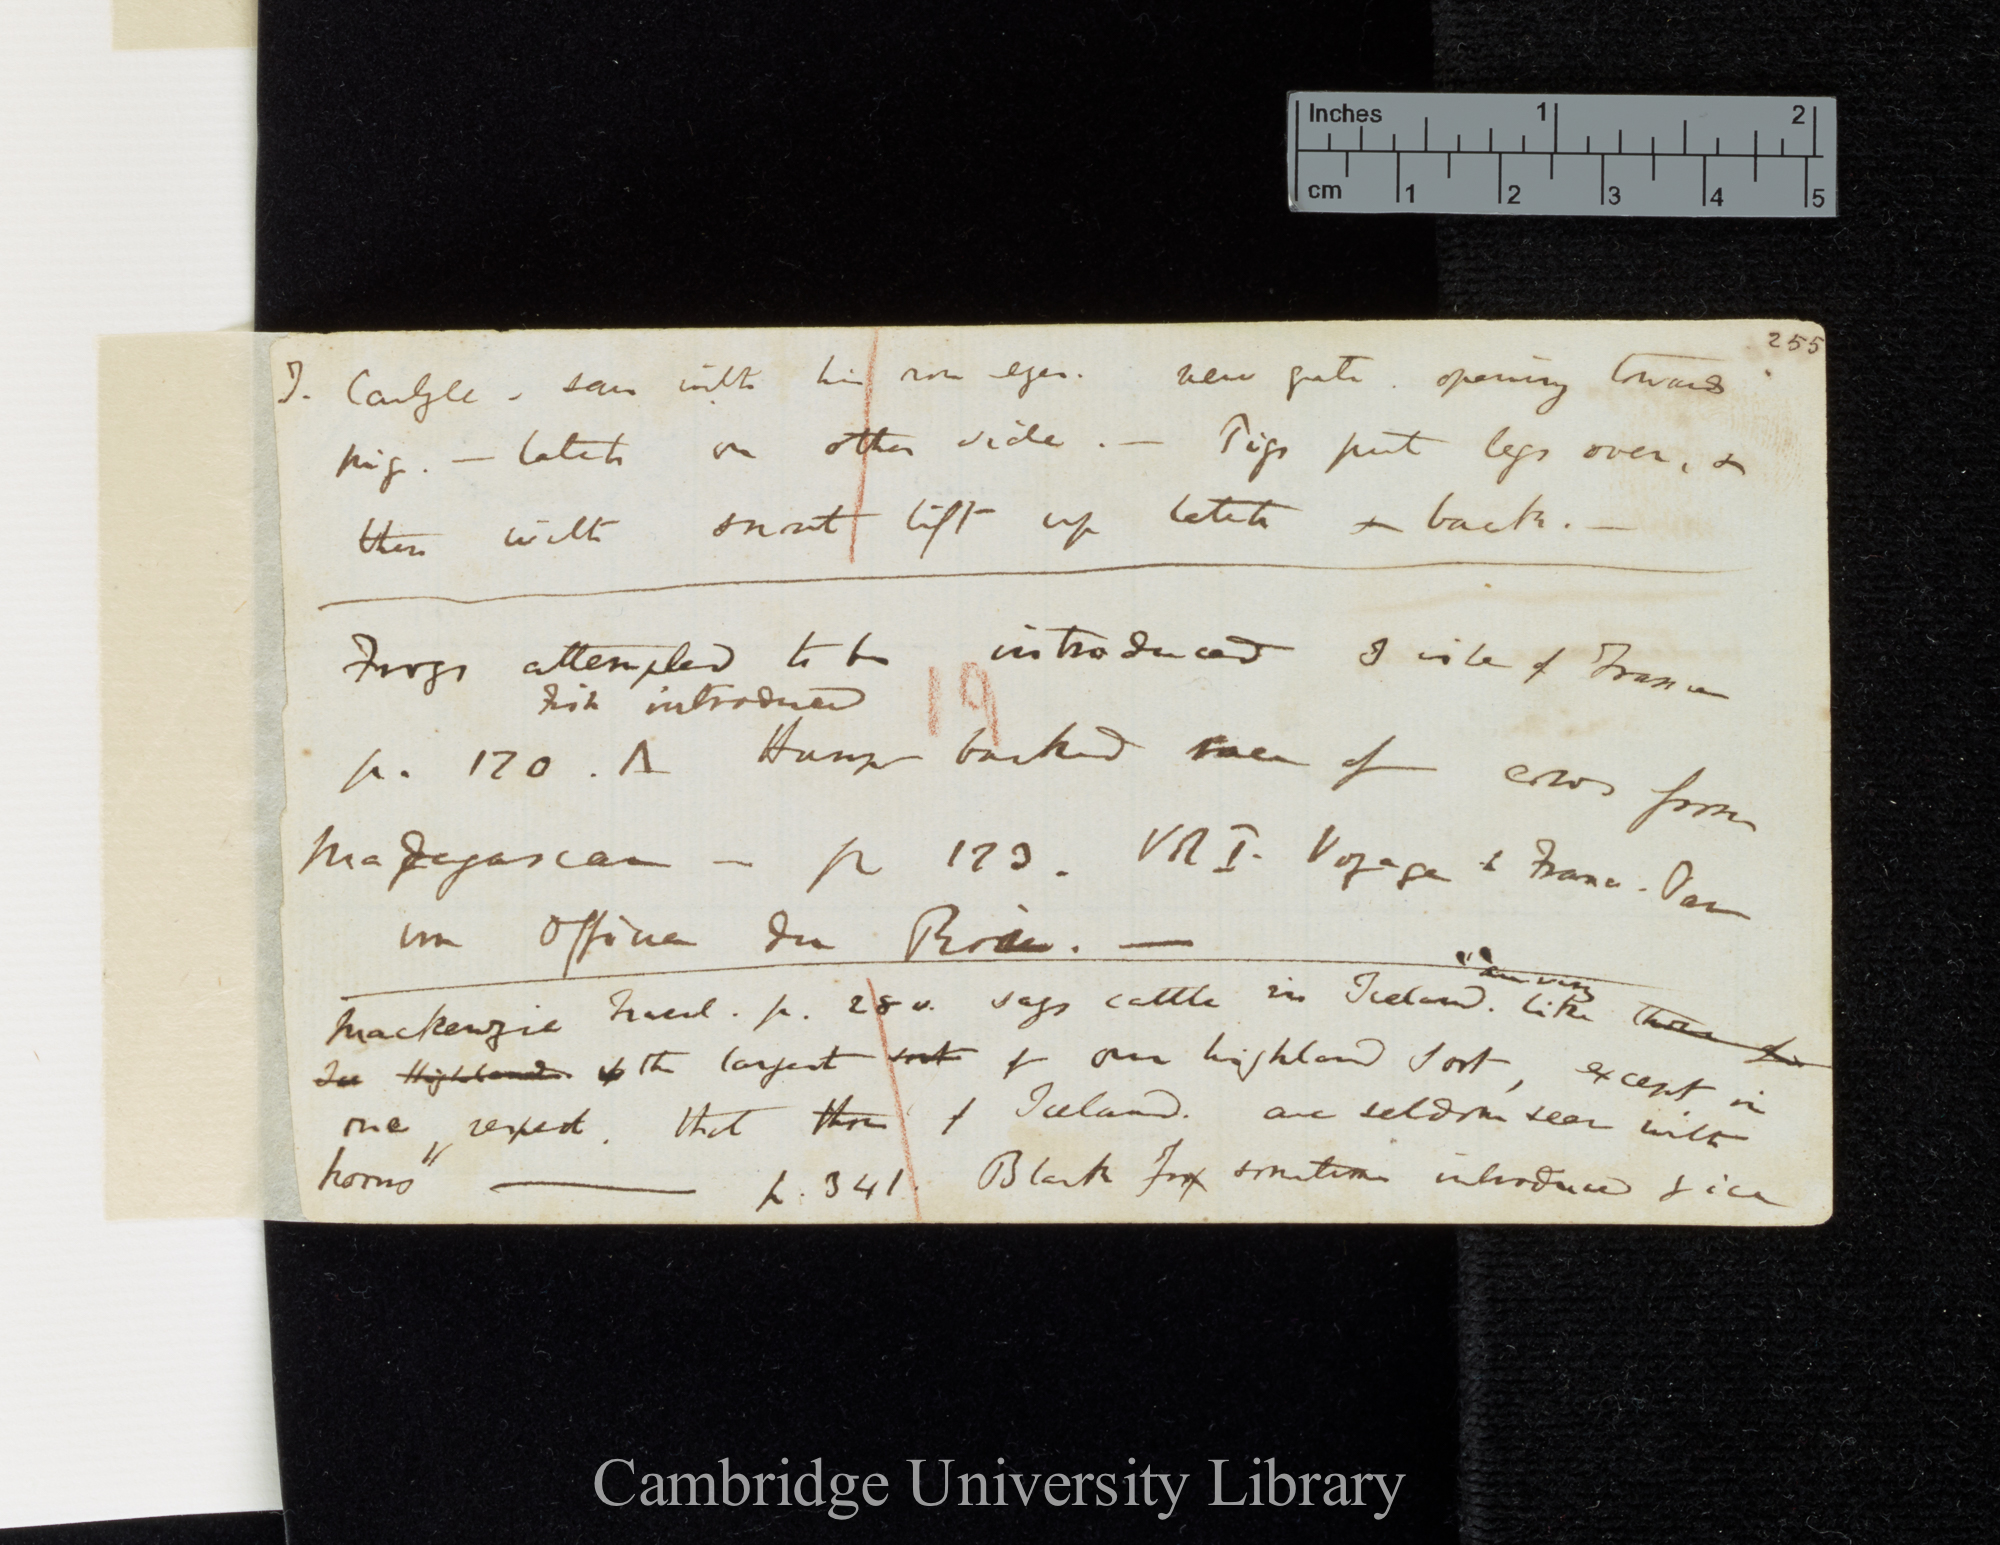 Inches 1 2
cm 1 2 3 4 5
255
T. Carlyle, saw with his own eyes. new gate. opening towards
pig. — latch on other side. — Pigs put legs over, &
then with snout lift up latch & back. —
Frogs attempted to be introduced I isle of France
Fish introduced
19
p. 170. Λ Hump backed race of cows from
Madagascar — p 173. Vol I. Voyage Franc. Par
un Officier du Roi. —
"are very
Mackenzie Travel. p. 280. says cattle in Iceland. like those
Highlands the largest sort of our highland sort, except in
one respect. that those of Iceland. are seldom seen with
horns" — p. 341. Black Fox sometimes introduced ice
Cambridge University Library